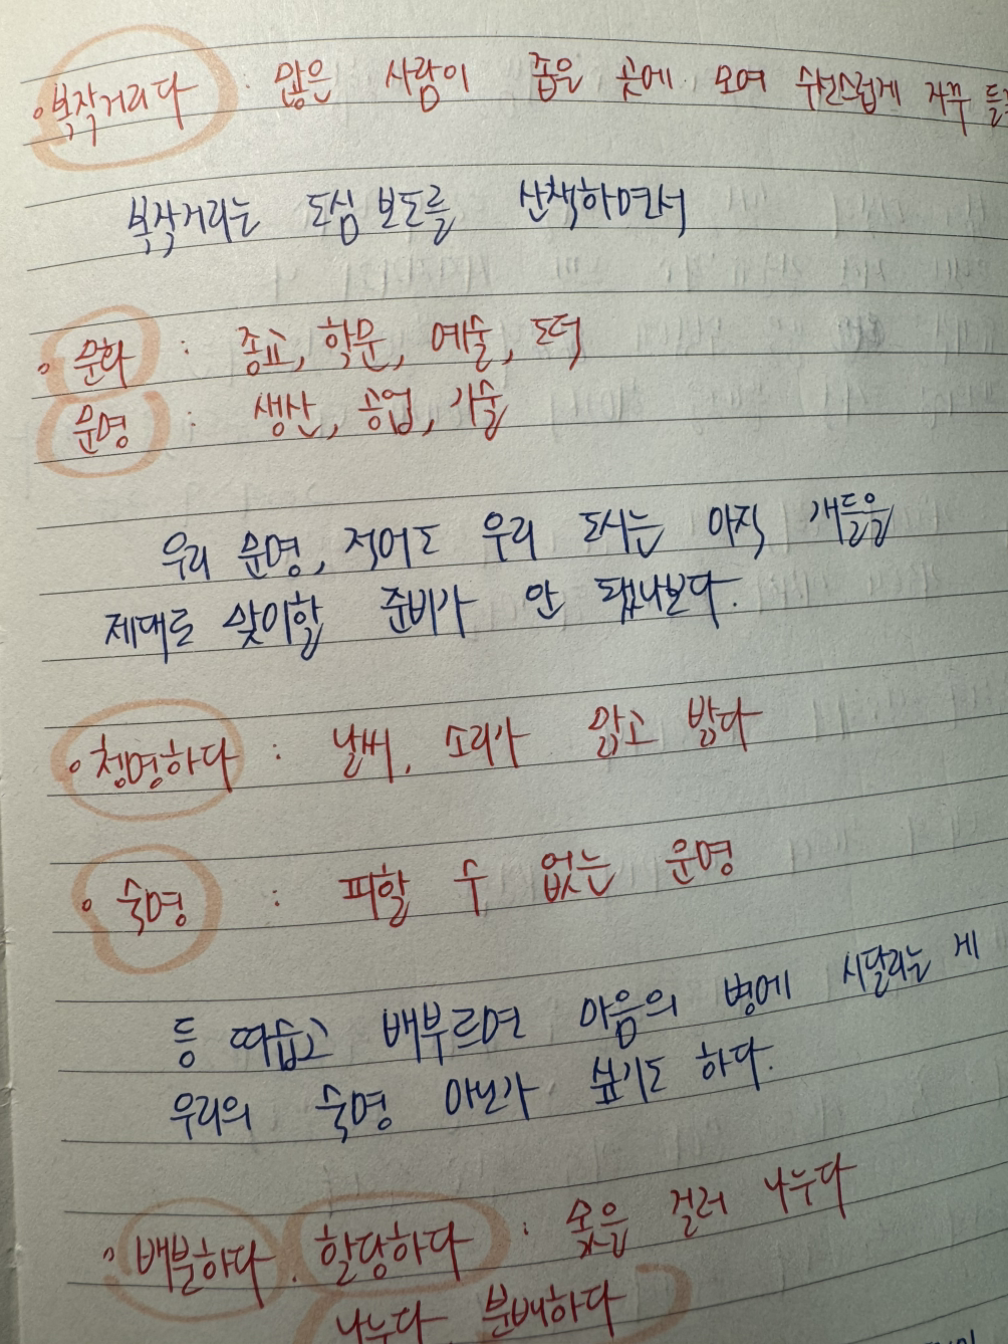 복작거리다 : 많은 사람이 좁은 곳에 모여 수선스럽게 자꾸
복작거리는 도심 보도를 산책하면서
문화 : 종교, 학문, 예술, 도덕
문명 : 생산, 공업, 기술
우리 문명, 적어도 우리 도시는 아직 개들을
제대로 맞이할 준비가 안 됐나보다.
청명하다 : 날씨, 소리가 맑고 밝다
숙명 : 피할 수 없는 운명
등 따습고 배부르면 마음의 병에 시달리는 게
우리의 숙명 아닌가 싶기도 하다.
배분하다. 할당하다 : 몫을 갈라 나누다
나누다 분배하다